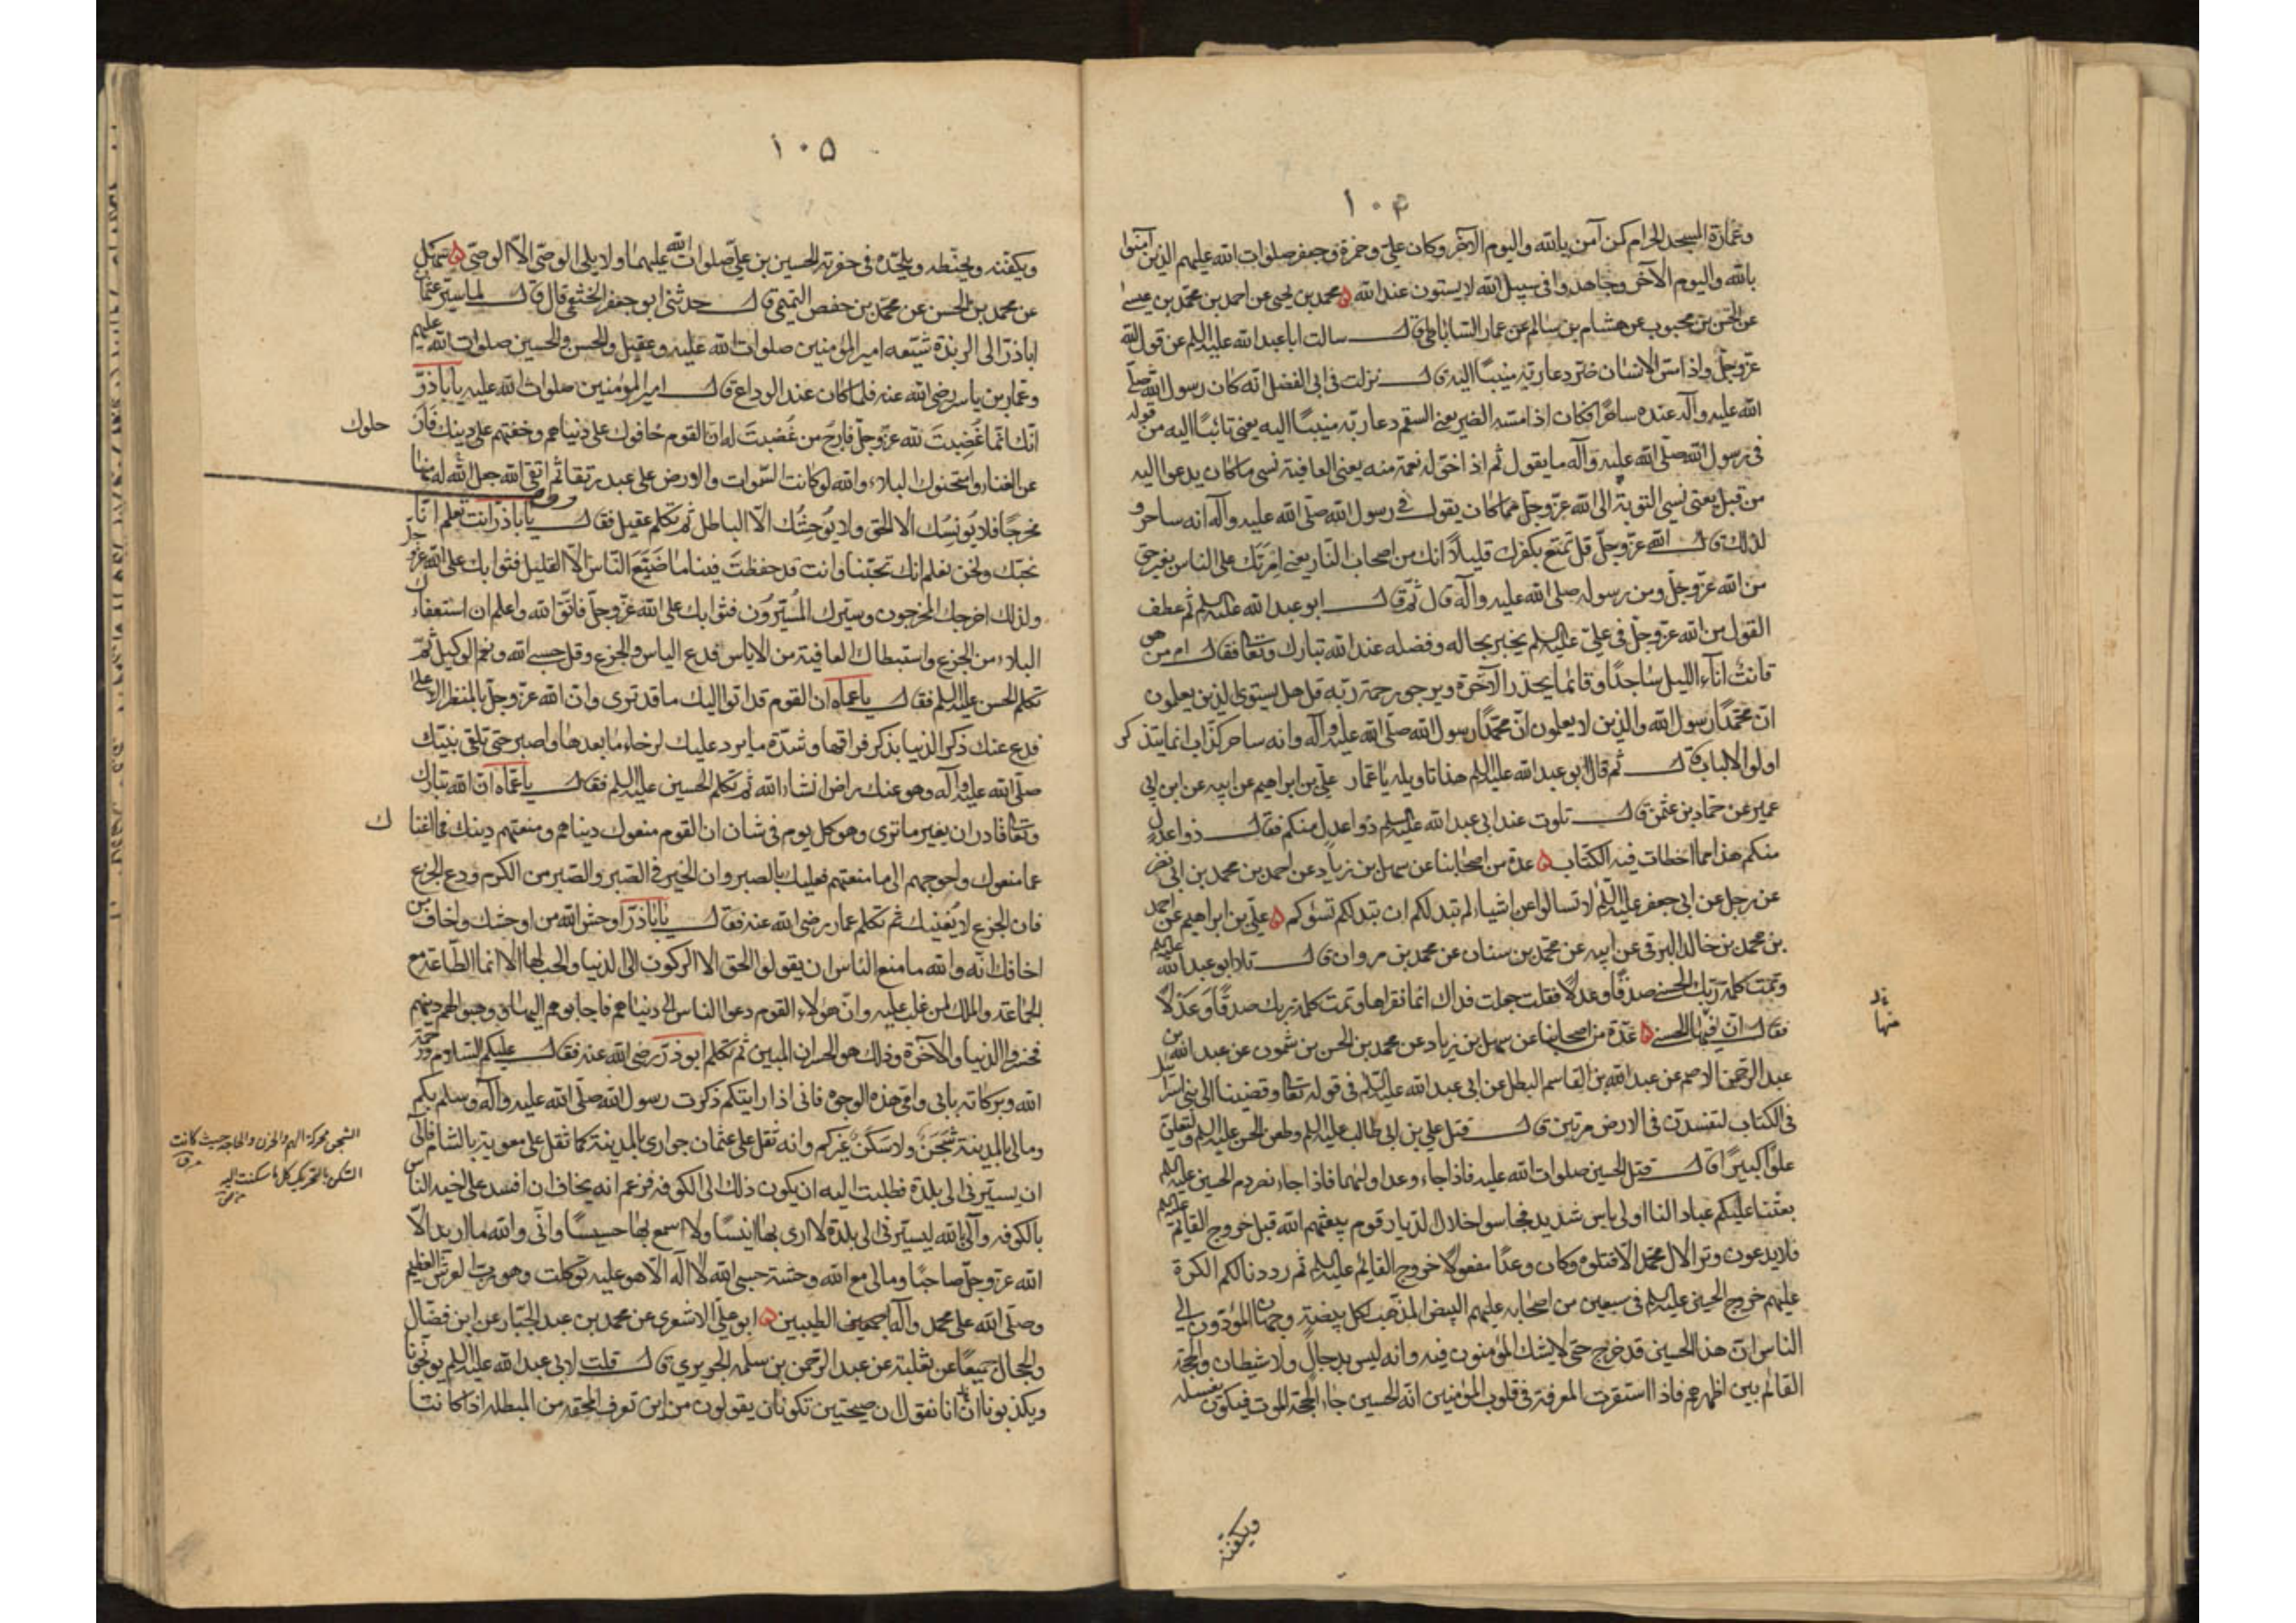 ١٠٤
وعمارة المسجد الحرام كمن آمن بالله واليوم الآخر وكان علي وحمزة وجعفر صلوات الله عليهم الذين آمنوا
بالله واليوم الآخر وجاهدوا في سبيل الله لا يستون عند الله ۵ محمد بن يحيى عن احمد بن محمد بن عيسى
عن الحسن بن محبوب عن هشام بن سالم عن عمار الساباطي قال سالت ابا عبد الله عليه السلم عن قول الله
عز وجل واذا مس الانسان ضر دعا ربه منيبا اليه قال نزلت في ابي الفضل انه كان رسول الله صلى
الله عليه وآله عنده ساحرا فكان اذا مسه الضر يعني السقم دعا ربه منيبا اليه يعني تائبا اليه من قوله
في رسول الله صلى الله عليه وآله ما يقول ثم اذا خوله نعمة منه يعني العافية نسي ما كان يدعوا اليه
من قبل يعني نسي التوبة الى الله عز وجل مما كان يقول في رسول الله صلى الله عليه وآله انه ساحر و
لذلك قال الله عز وجل قل تمتع بكفرك قليلا انك من اصحاب النار يعني امرتك على الناس بغير حق
من الله عز وجل ومن رسوله صلى الله عليه وآله قال ثم قال ابو عبد الله عليه السلم ثم عطف
القول من الله عز وجل في علي عليه السلم يخبر بحاله وفضله عند الله تبارك وتعالى فقال ام من هو
قانت آناء الليل ساجدا وقائما يحذر الآخرة ويرجو رحمة ربه قل هل يستوي الذين يعلمون
ان محمدا رسول الله والذين لا يعلمون ان محمدا رسول الله صلى الله عليه وآله وانه ساحر كذاب انما يتذكر
اولوا الالباب قال ثم قال ابو عبد الله عليه السلم هذا تاويله يا عمار علي بن ابراهيم عن ابيه عن ابن ابي
عمير عن حماد بن عثمن قال تلوت عند ابي عبد الله عليه السلم ذوا عدل منكم فقال ذو عدل
منكم هذا مما اخطات فيه الكتاب ۵ عدة من اصحابنا عن سهل بن زياد عن احمد بن محمد بن ابي نصر
عن رجل عن ابي جعفر عليه السلم لا تسالوا عن اشياء لم تبد لكم ان تبد لكم تسؤكم ۵ علي بن ابراهيم عن احمد
بن محمد بن خالد البرقي عن ابيه عن محمد بن سنان عن محمد بن مروان قال تلا ابو عبد الله عليه السلم
وتمت كلمة ربك الحسنى صدقا وعدلا فقلت جعلت فداك انما نقراها وتمت كلمة ربك صدقا وعدلا
فقال ان فيها الحسنى ۵ عدة من اصحابنا عن سهل بن زياد عن محمد بن الحسن بن شمون عن عبد الله بن
عبد الرحمن الاصم عن عبد الله بن القاسم البطل عن ابي عبد الله عليه السلم في قوله تعالى وقضينا الى بني اسرائيل
في الكتاب لتفسدن في الارض مرتين قال قتل علي بن ابي طالب عليه السلم وطعن الحسن عليه السلم ولتعلن
علوا كبيرا قال قتل الحسين صلوات الله عليه فاذا جاء وعد اوليهما فاذا جاء نصر دم الحسين عليه السلم
بعثنا عليكم عبادا لنا اولي باس شديد فجاسوا خلال الديار قوم يبعثهم الله قبل خروج القائم عليه السلم
فلا يدعون وترا لآل محمد الا قتلوه وكان وعدا مفعولا خروج القائم عليه السلم ثم رددنا لكم الكرة
عليهم خروج الحسين عليه السلم في سبعين من اصحابه عليهم البيض المذهب لكل بيضة وجهان المؤدون الى
الناس ان هذا الحسين قد خرج حتى لا يشك المؤمنون فيه وانه ليس بدجال ولا شيطان والحجة
القائم بين اظهرهم فاذا استقرت المعرفة في قلوب المؤمنين انه الحسين جاء الحجة الموت فيكون يغسله
ويكفنه
١٠٥
ويكفنه ويحنطه ويلحده في حفرته الحسين بن علي صلوات الله عليهما ولا يلي الوصي الا الوصي ۵ سهل
عن محمد بن الحسن عن محمد بن حفص التميمي قال حدثني ابو جعفر الخثعمي قال قال لما سير عثمان
اباذر الى الربذة شيعه امير المؤمنين صلوات الله عليه وعقيل والحسن والحسين صلوات الله عليهم
وعمار بن ياسر رضي الله عنه فلما كان عند الوداع قال امير المؤمنين صلوات الله عليه ياباذر
انك انما غضبت لله عز وجل فارج من غضبت له ان القوم خافوك على دنياهم وخفتهم على دينك فار
حلوك
عن الفناء وامتحنوك البلاء والله لو كانت السموات والارض على عبد رتقا ثم اتقى الله جعل الله له منها
مخرجا فلا يؤنسك الا الحق ولا يوحشك الا الباطل ثم تكلم عقيل فقال ياباذر انت تعلم انا
نحبك ونحن نعلم انك تحبنا وانت قد حفظت فينا ما ضيع الناس الا القليل فثوابك على الله عز وجل
ولذلك اخرجك المخرجون وسيرك المسيرون فثوابك على الله عز وجل فاتق الله واعلم ان استعفاءك
البلاء من الجزع واستبطاك العافية من الاياس فدع الياس والجزع وقل حسبي الله ونعم الوكيل ثم
تكلم الحسن عليه السلم فقال يا عماه ان القوم قد اتوا اليك ما قد ترى وان الله عز وجل بالمنظر الاعلى
فدع عنك ذكر الدنيا بذكر فراقها وشدة ما يرد عليك لرخاء ما بعدها واصبر حتى تلقى نبيك
صلى الله عليه وآله وهو عنك راض انشاء الله ثم تكلم الحسين عليه السلم فقال يا عماه ان الله تبارك
وتعالى قادر ان يغير ما ترى وهو كل يوم في شان ان القوم منعوك دنياهم ومنعتهم دينك فما اغنا
ك
عما منعوك واحوجهم الى ما منعتهم فعليك بالصبر وان الخير في الصبر والصبر من الكرم ودع الجزع
فان الجزع لا يغنيك ثم تكلم عمار رضي الله عنه فقال ياباذر اوحش الله من اوحشك واخاف من
اخافك انه والله ما منع الناس ان يقولوا الحق الا الركون الى الدنيا والحب لها الا انما الطاعة مع
الجماعة والملك لمن غلب عليه وان هولاء القوم دعوا الناس الى دنياهم فاجابوهم اليها ووهبوا لهم دينهم
فخسروا الدنيا والآخرة وذلك هو الخسران المبين ثم تكلم ابوذر رضي الله عنه فقال عليكم السلام ورحمة
الله وبركاته بابي وامي هذه الوجوه فاني اذا رايتكم ذكرت رسول الله صلى الله عليه وآله وسلم بكم
ومالي بالمدينة شجن ولا سكن غيركم وانه ثقل على عثمان جواري بالمدينة كما ثقل على معوية بالشام فآلى
الشجن محركة الهم والحزن والحاجة حيث كانت
السكن بالتحريك كل ما سكنت اليه
ان يسيرني الى بلدة فطلبت اليه ان يكون ذلك الى الكوفه فزعم انه يخاف ان افسد على اخيه الناس
بالكوفه وآلى بالله ليسيرني الى بلدة لا ارى بها انيسا ولا اسمع بها حسيسا واني والله ما اريد الا
الله عز وجل صاحبا ومالي مع الله وحشة حسبي الله لا اله الا هو عليه توكلت وهو رب العرش العظيم
وصلى الله على محمد وآله اجمعين الطيبين ۵ ابو علي الاشعري عن محمد بن عبد الجبار عن ابن فضال
والحجال جميعا عن ثعلبة عن عبد الرحمن بن سلمه الجريري قال قلت لابي عبد الله عليه السلم يوبخونا
ويكذبونا انا نقول ان صيحتين تكونان يقولون من اين تعرف المحقه من المبطله اذا كانتا